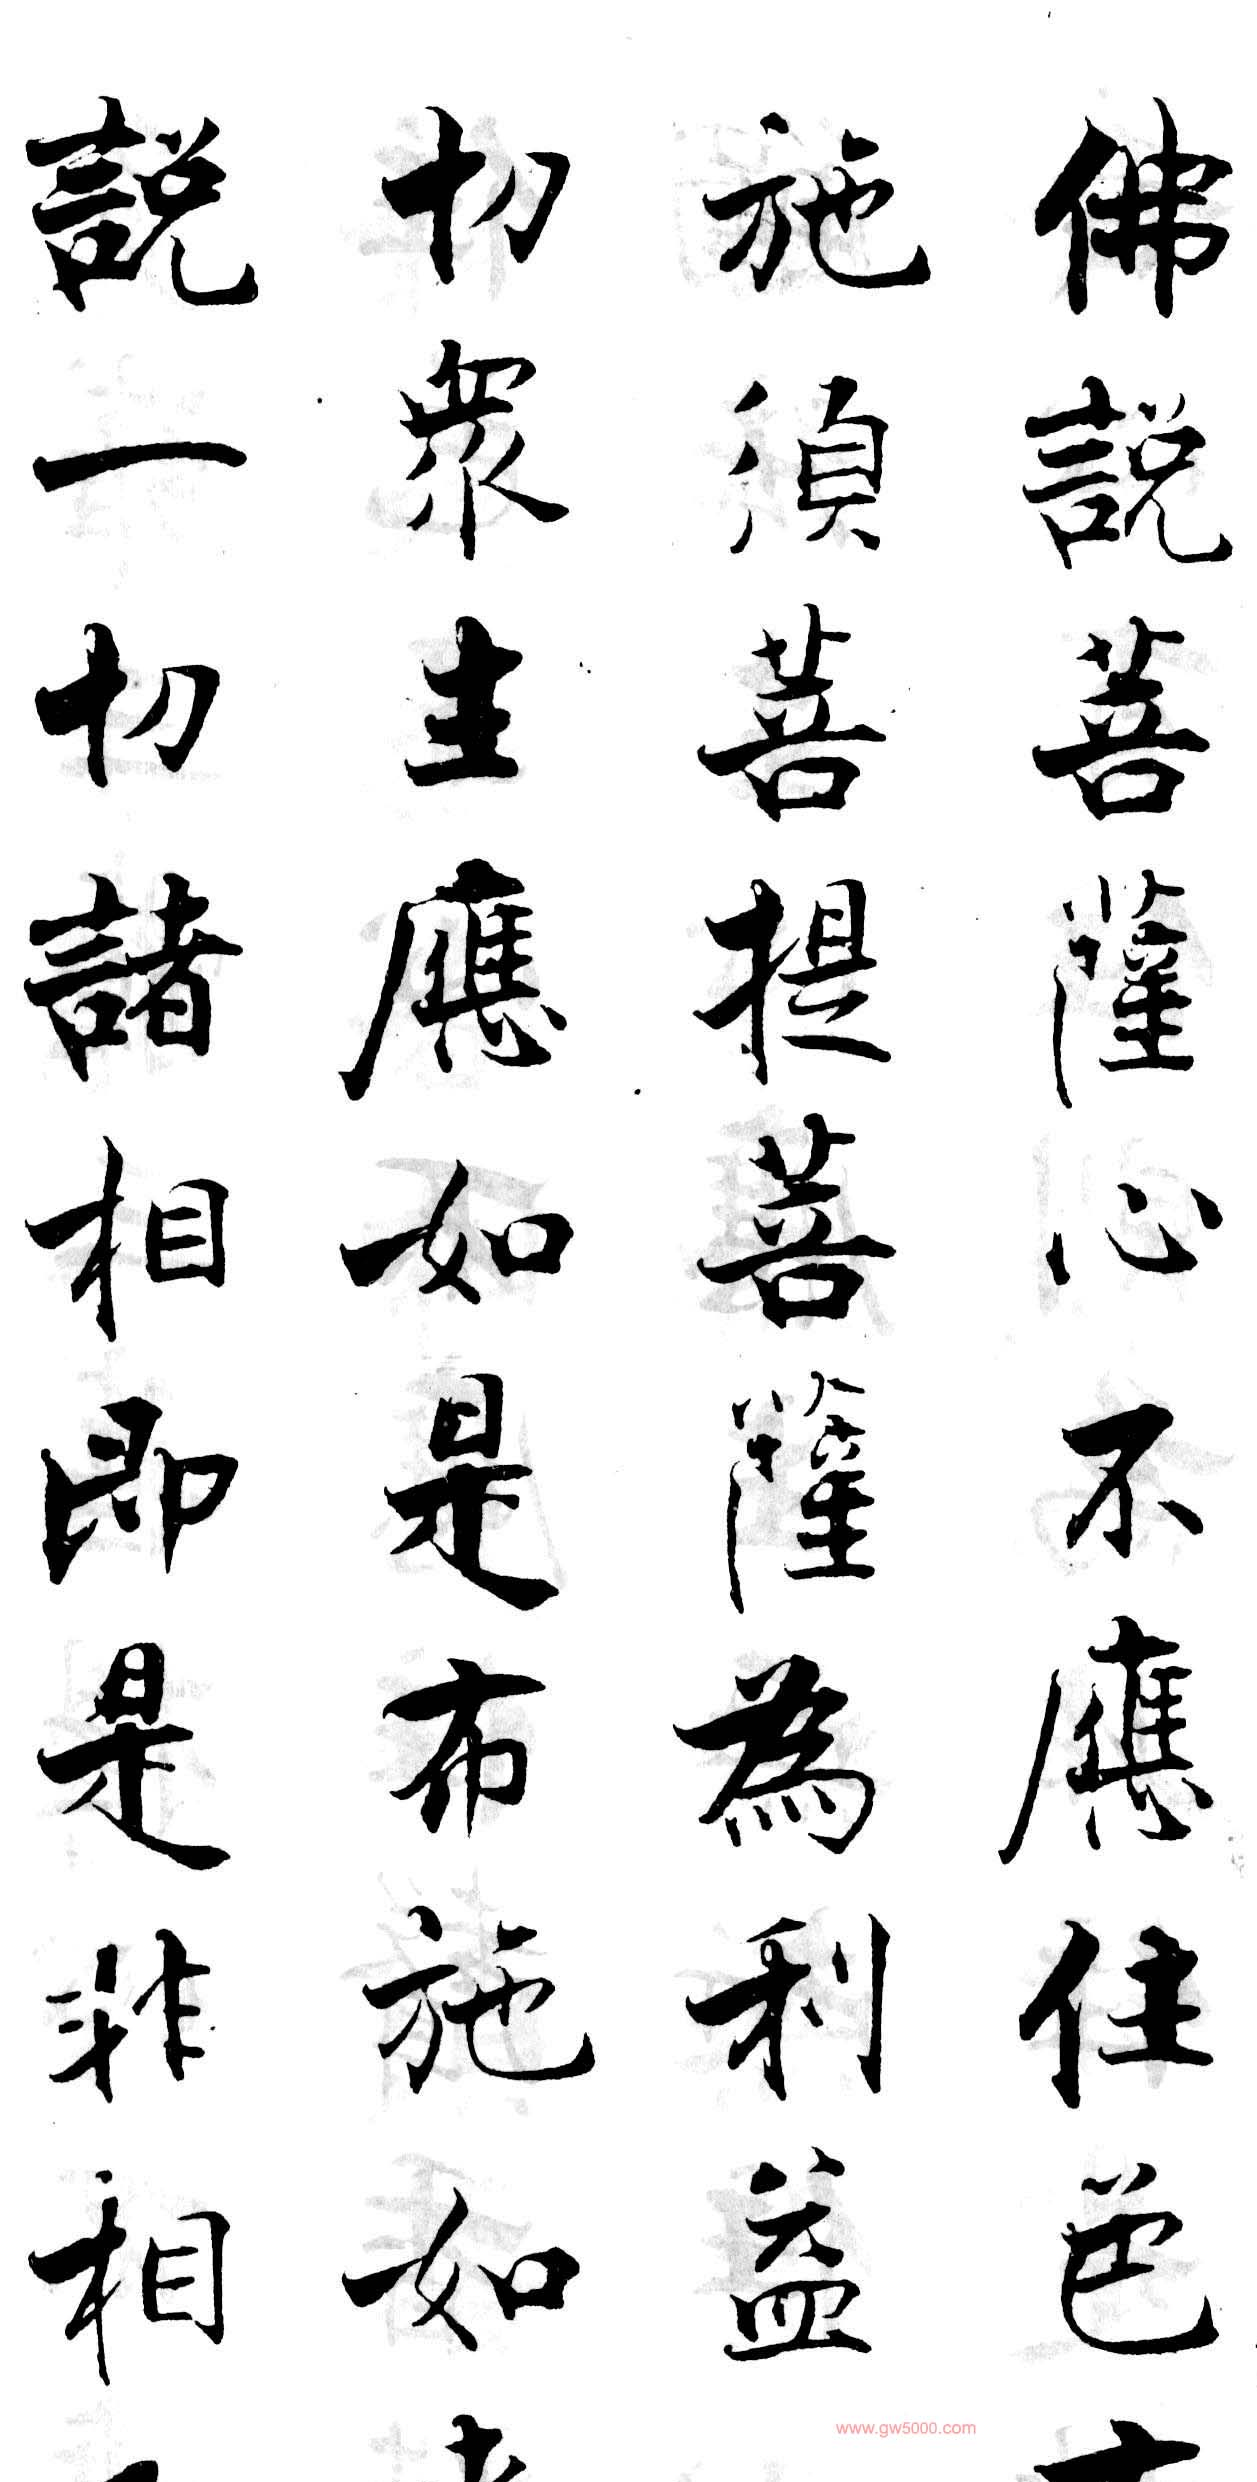 佛說菩薩心不應住色
施須菩提菩薩為利益
切眾生應如是布施如
說一切諸相即是非相
www.gw5000.com